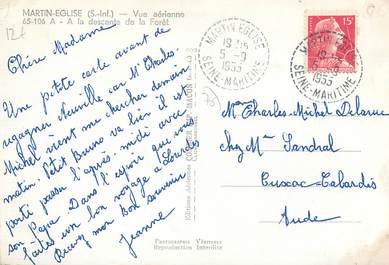 MARTIN-EGLISE (S.-Inf.) — Vue aérienne
65-106 A - A la descente de la Forêt
12f
Chère Madame
Une p'tite carte avant de
regagner Neuville car Mr Charles-
Michel vient me chercher demain
matin. Petit Bruno va bien il est
parti passer l'après midi avec
son Papa. Dans l'espoir que vous
faites un bon voyage à Lourdes
Recevez mon bon souvenir
Jeanne
Editions Aériennes COMBIER IMP. MACON
Photographie Véritable
Reproduction Interdite
MARTIN-EGLISE
5-9
SEINE-MARITIME
15F
MARTIN-EGLISE
SEINE-MARITIME
Mr Charles-Michel Delarue
chez Mme Sandral
Cuxac-Cabardès
Aude